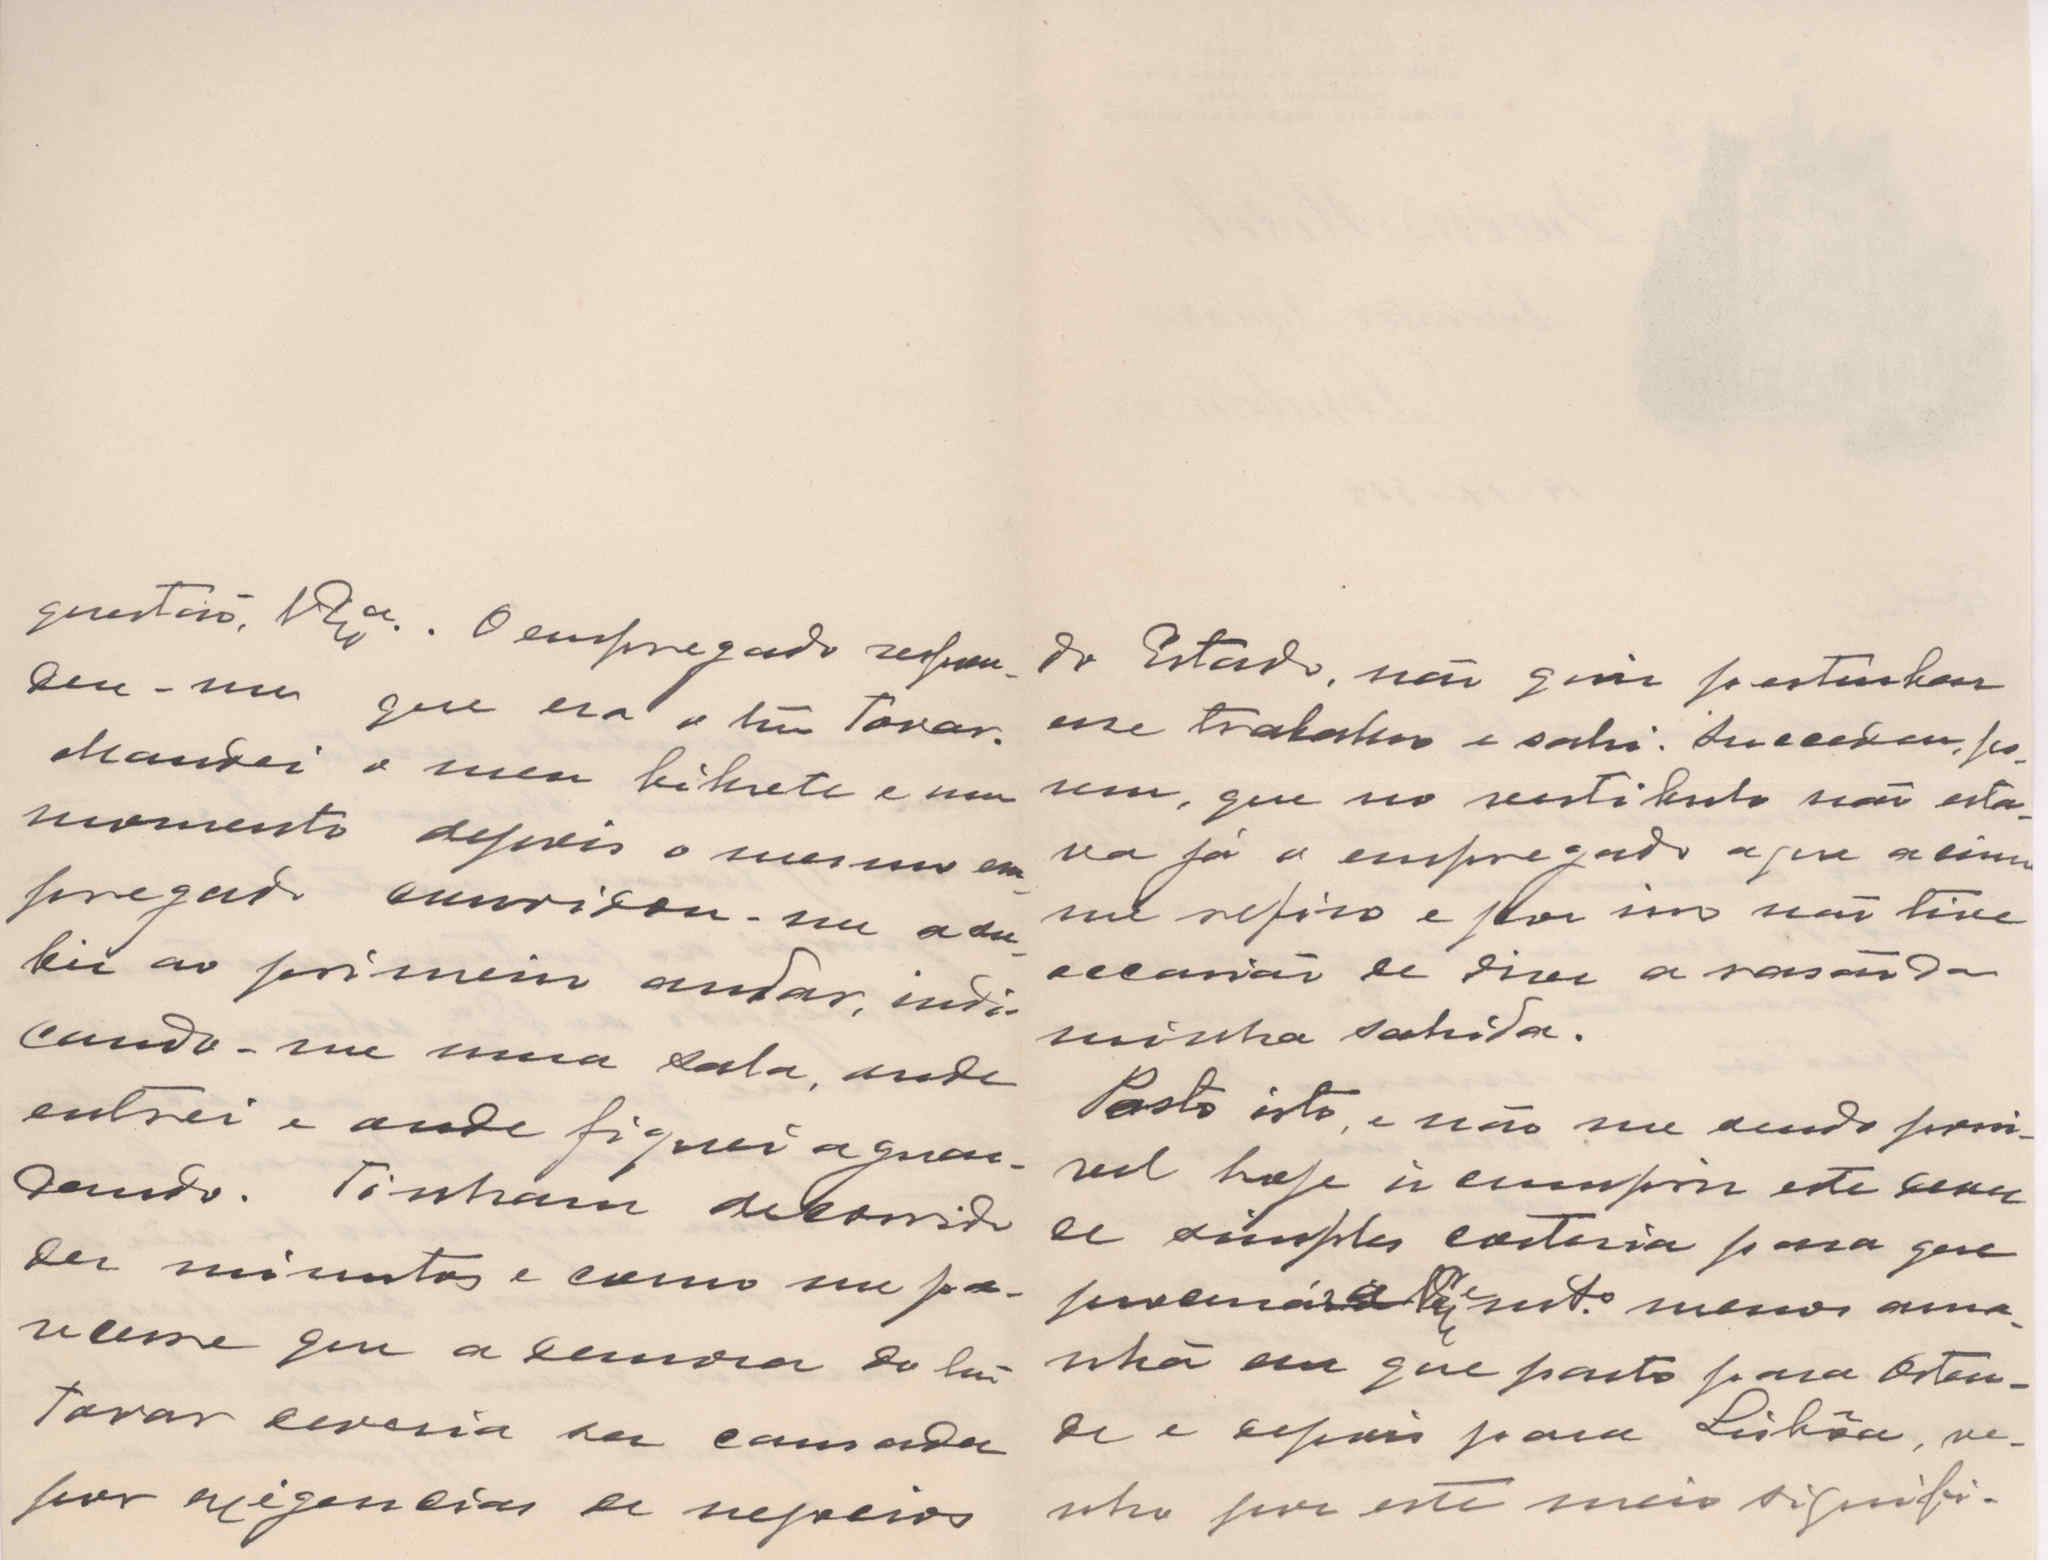 questão, V. Ex.ª. O empregado respon-
deu-me que era o snr Tovar.
Mandei o meu bilhete e um
momento depois o mesmo em-
pregado convidou-me a su-
bir ao primeiro andar, indi-
cando-me uma sala, onde
entrei e onde fiquei aguar-
dando. Tinham decorrido
dez minutos e como me pa-
recesse que a demora do snr
Tovar deveria ser causada
por exigencias de negocios
do Estado, não quiz perturbar
esse trabalho e sahi. Succedeu, po-
rem, que no vestibulo não esta-
va já o empregado a que acima
me refiro e por isso não tive
occasião de dizer a rasão da
minha sahida.
Posto isto, e não me sendo possi-
vel hoje ir cumprir este dever
de simples cortezia para que
procurára menos ama-
nhã em que parto para Osten-
de e depois para Lisbôa, ve-
nho por este meio signifi-